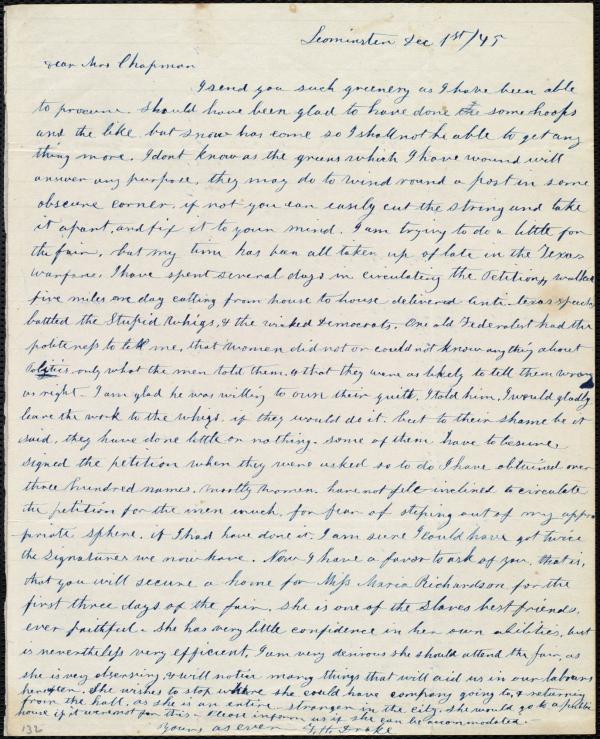 Leominster Dec 1st/45
Dear Mrs Chapman
I send you such greenery as I have been able
to procure. Should have been glad to have done the some hoops
and the like but snow has come so I shall not be able to get any
thing more. I dont know as the greens which I have wound will
answer any purpose, they may do to wind round a post in some
obscure corner, if not you can easily cut the string and take
it apart, and fix it to your mind. I am trying to do a little for
the fair, but my time has ben all taken up of late in the Texas
warfare. I have spent several days in circulating the Petition, walked
five miles one day calling from house to house delivered Anti-Texas speeches
battled the Stupid Whigs, & the wicked Democrats. One old Federalist had the
politeness to tell me, that Women did not or could not know anything about
Politics only what the men told them, & that they were as likely to tell them wrong
as right - I am glad he was willing to own their guilt, I told him, I would gladly
leave the work to the whigs, if they would do it. but to their shame be it
said, they have done little or nothing. some of them have to be sure,
signed the petition when they were asked so to do I have obtained over
three hundred names. mostly women. have not felt inclined to circulate
the petition for the men much, for fear of steping out of my appro
priate sphere. if I had have done it. I am sure I could have got twice
the signatures we now have. Now I have a favor to ask of you, that is,
that you will secure a home for Miss Maria Richardson for the
first three days of the fair. She is one of the slaves best friends,
ever faithful - She has very little confidence in her own abilities, but
is nevertheless very efficient, I am very desirous she should attend the fair, as
she is very observing, & will notice many things that will aid us in our labours
hereafter. She wishes to stop where she could have company going to, & returning
from the hall, as she is an entire stranger in the city. she would go to a public
house if it were not for this - Please inform us if she can be accommodated -
Yours as ever F. H. Drake
132